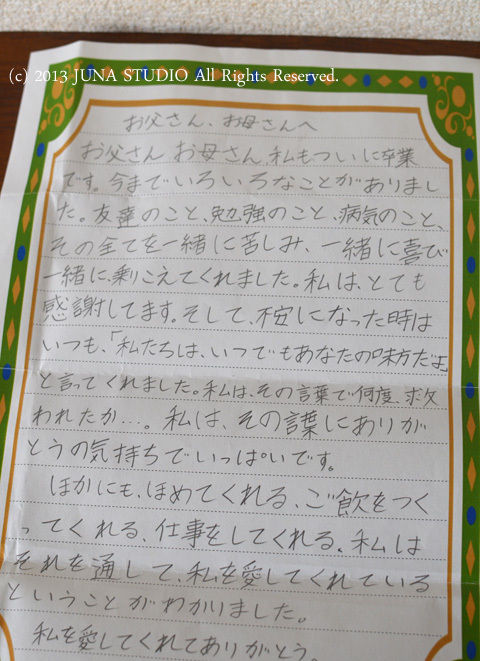 (c) 2013 JUNA STUDIO All Rights Reserved.
お父さん、お母さんへ
お父さん お母さん、私もついに卒業
です。今までいろいろなことがありまし
た。友達のこと、勉強のこと、病気のこと、
その全てを一緒に苦しみ、一緒に喜び
一緒に、乗りこえてくれました。私は、とても
感謝してます。そして、不安になった時は
いつも、「私たちは、いつでもあなたの味方だよ」
と言ってくれました。私は、その言葉で何度、救
われたか…。私は、その言葉にありが
とうの気持ちでいっぱいです。
ほかにも、ほめてくれる、ご飲をつく
ってくれる、仕事をしてくれる。私は
それを通して、私を愛してくれている
ということがわかりました。
私を愛してくれてありがとう。